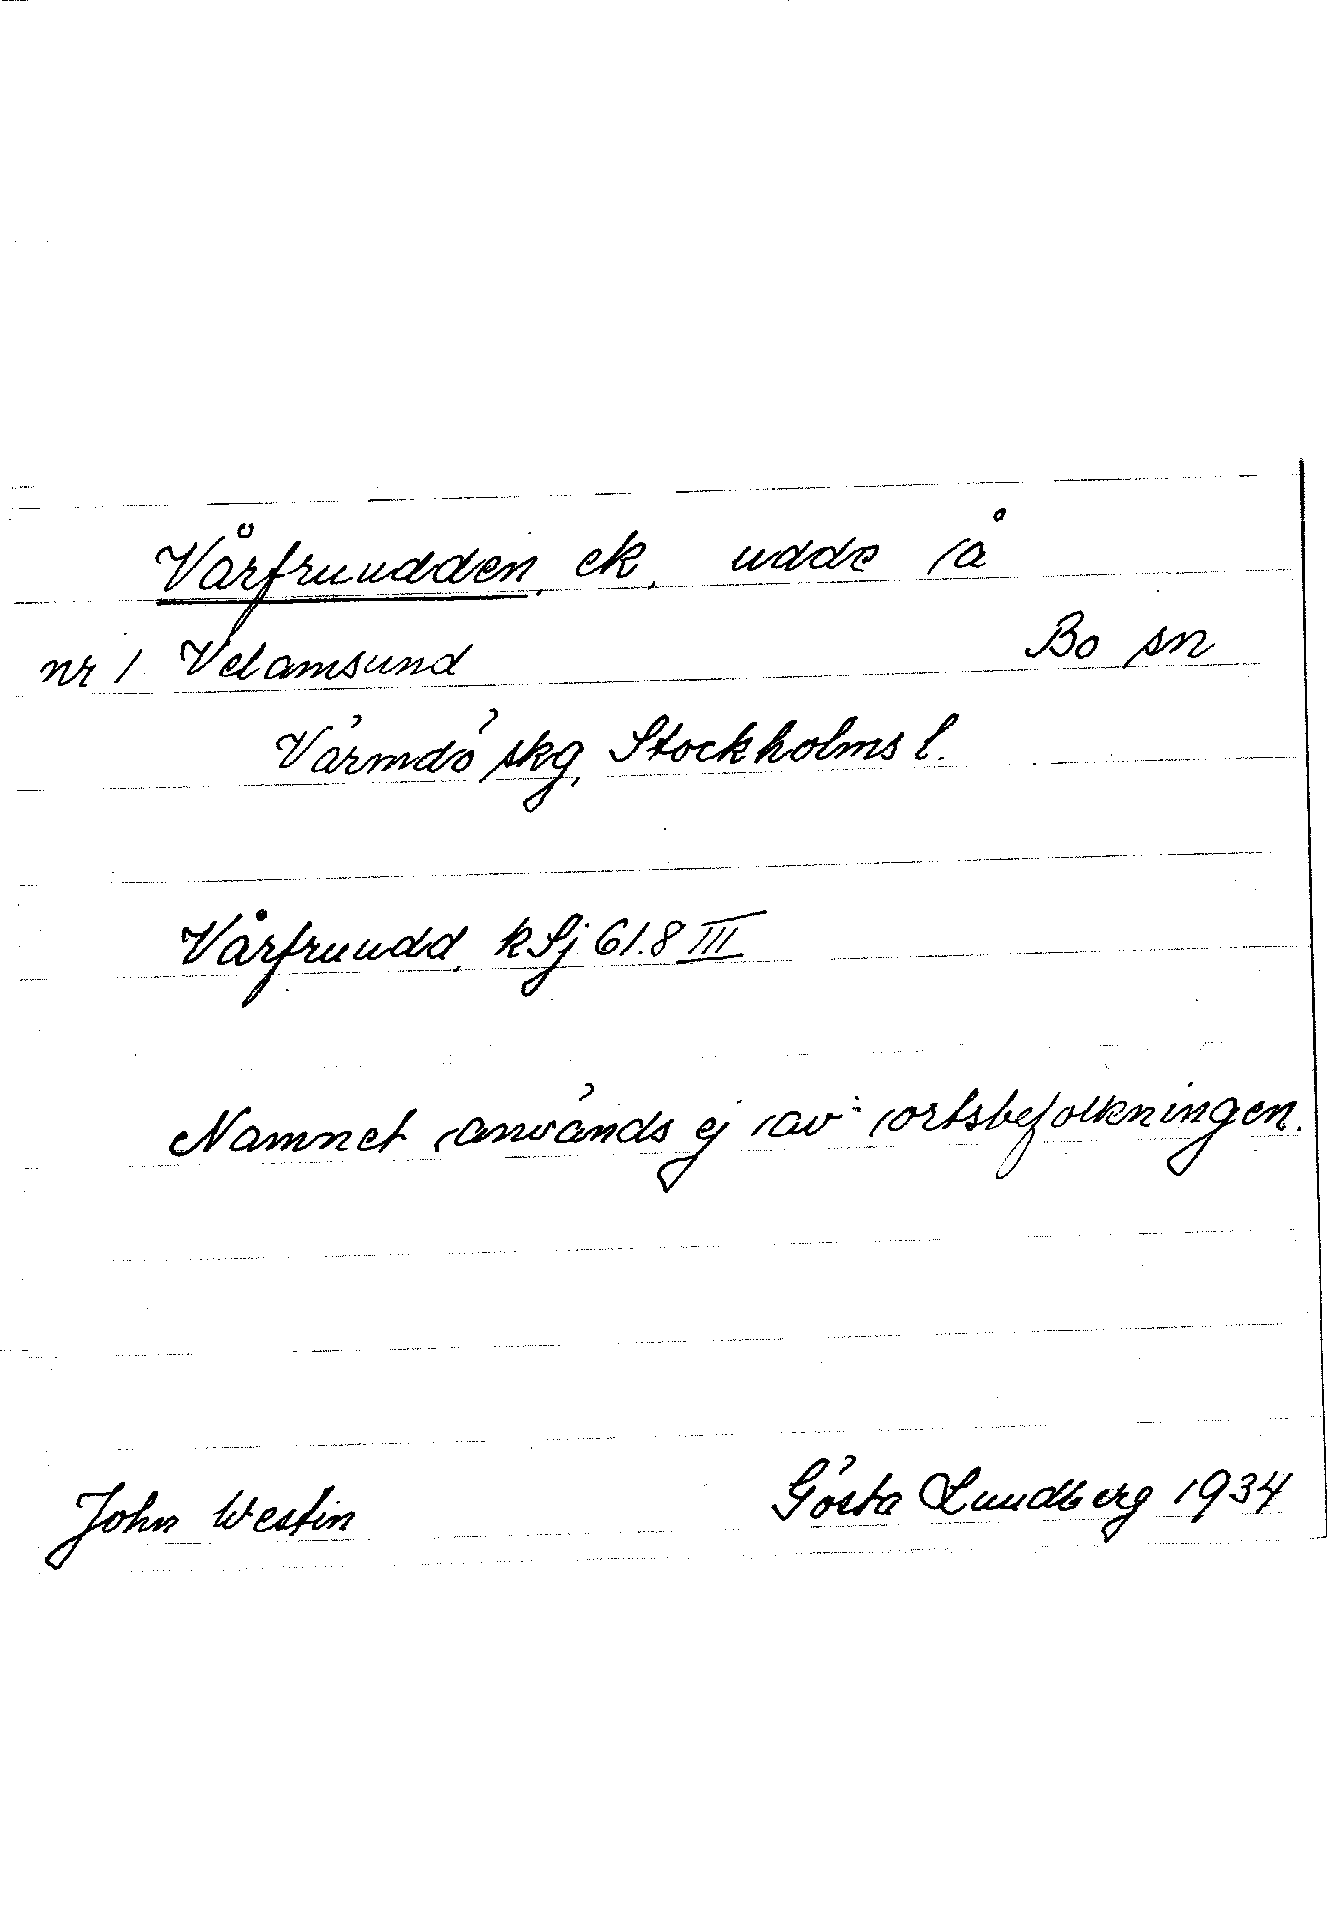 Vårfruudden, ek, udde å
nr 1 Velamsund Bo sn
Värmdö skg, Stockholms l.
Vårfruudd, k Sj 61.8 III
Namnet används ej av ortsbefolkningen.
John Westin Gösta Lundberg 1934